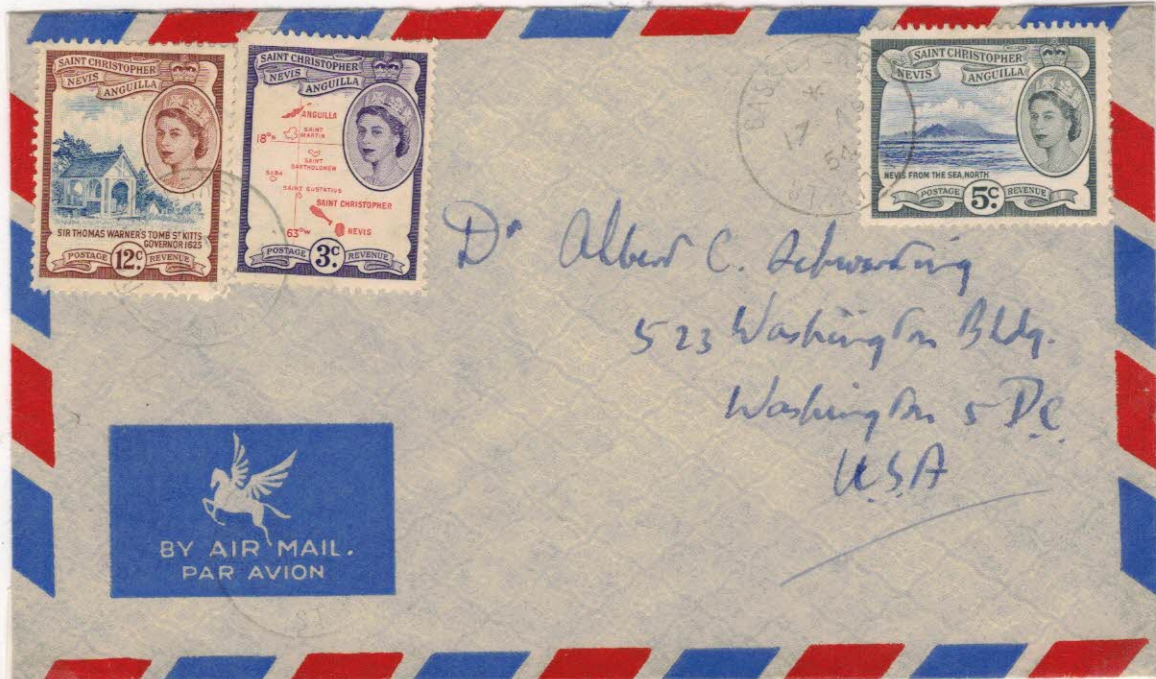 SAINT CHRISTOPHER
NEVIS
ANGUILLA
SIR THOMAS WARNER'S TOMB ST KITTS
GOVERNOR 1625
POSTAGE 12c REVENUE
SAINT CHRISTOPHER
NEVIS
ANGUILLA
ANGUILLA
18°N
SAINT
MARTIN
SAINT
BARTHOLOMEW
SABA
SAINT EUSTATIUS
SAINT CHRISTOPHER
63°W
NEVIS
POSTAGE 3c REVENUE
17
54
SAINT CHRISTOPHER
NEVIS ANGUILLA
NEVIS FROM THE SEA, NORTH
POSTAGE 5c REVENUE
Dr Albert C.
523 Washington Bldg.
Washington 5 D.C.
U.S.A
BY AIR MAIL.
PAR AVION